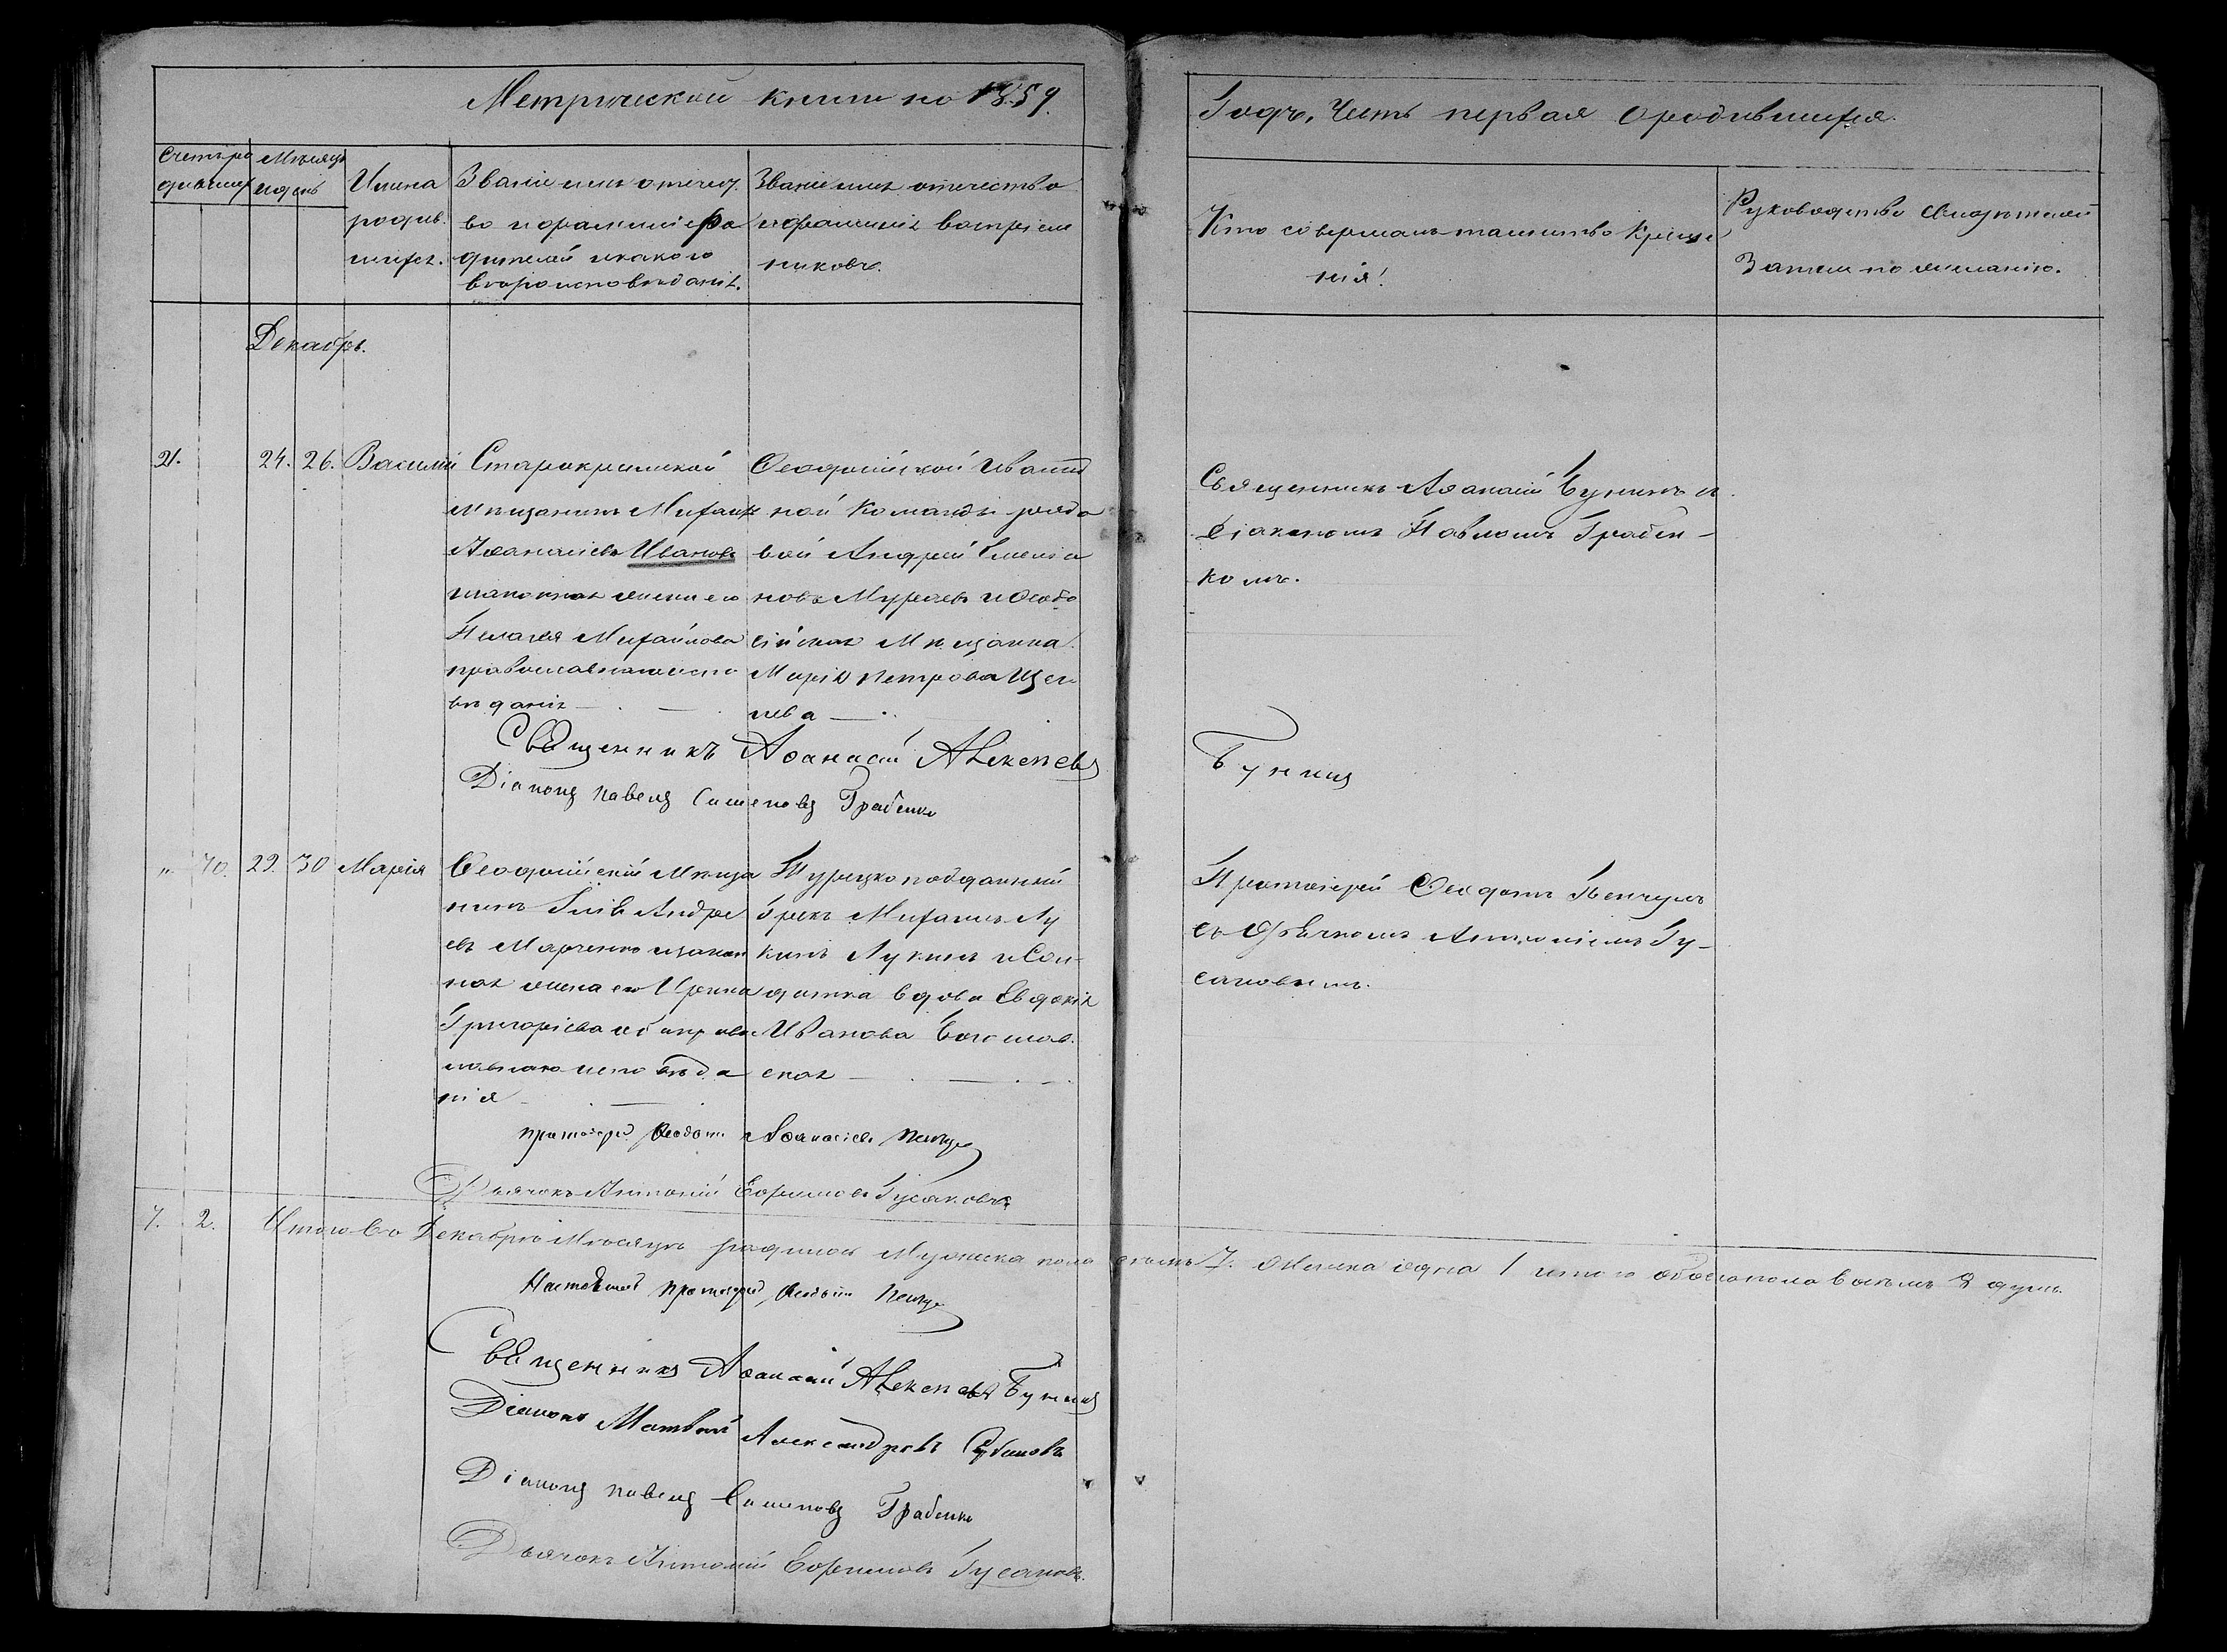 Метрической книги на 1859.
Годъ, Часть первая о родившихся.
Счетъ ро
дившихся
Мѣсяцъ
и день
Имена
родив.
шихся.
Званіе имя отечест.
во и фамилія ро
дителей и какого
вѣроисповѣданія.
Званіе имя отечество
и фамилія воспріем
никовъ.
Кто совершалъ таинство Креще
нія!
Рукоприкладство свидѣтелей
Записи по желанію.
Декабрь.
21. 24. 26. Василій
Старокрымской
Мѣщанинъ Михаилъ
Аѳанасіевъ Ивановъ
законная жена его
Пелагея Михайлова
православнаго испо
вѣданія
Ѳеодосійской Инвалид
ной Команды рядо
вой Андрей Емелья
новъ Муреевъ и Ѳеодо
сійская Мѣщанка
Марія Петрова Щег
лева
Священникъ Аѳанасій Бунинъ и
Діакономъ Павломъ Грабен-
комъ.
Священникъ Аѳанасій Алексѣевъ Бунинъ
Діаконъ Павелъ Семеновъ Грабенко
" 70. 29. 30 Марія
Ѳеодосійскій Мѣща
нинъ Андре
евъ Марченко и закон
ная жена его Ирина
Григоріева оба право
славнаго исповѣда
нія
Турецкоподданный
Грекъ Михаилъ Лу
кинъ Лукинъ и Сол-
датка вдова Евдокія
Иванова Богослав.
ская
Протоіерей Ѳеодотъ Бенчулъ
съ Дьячкомъ Антоніемъ Гу-
сановымъ.
Протоіерей Ѳеодотъ Аѳанасіевъ
Дьячокъ Антоній Ефремовъ Гусановъ
7. 2. Итого въ Декабрѣ Мѣсяцѣ родилось Мужеска пола семь 7. Женска одна 1 итого обоего пола восемь 8 душъ.
Настоятель Протоіерей Ѳеодотъ
Священникъ Аѳанасій Алексѣевъ Бунинъ
Діаконъ Матвѣй Александровъ
Діаконъ Павелъ Семеновъ Грабенко
Дьячокъ Антоній Ефремовъ Гусановъ.